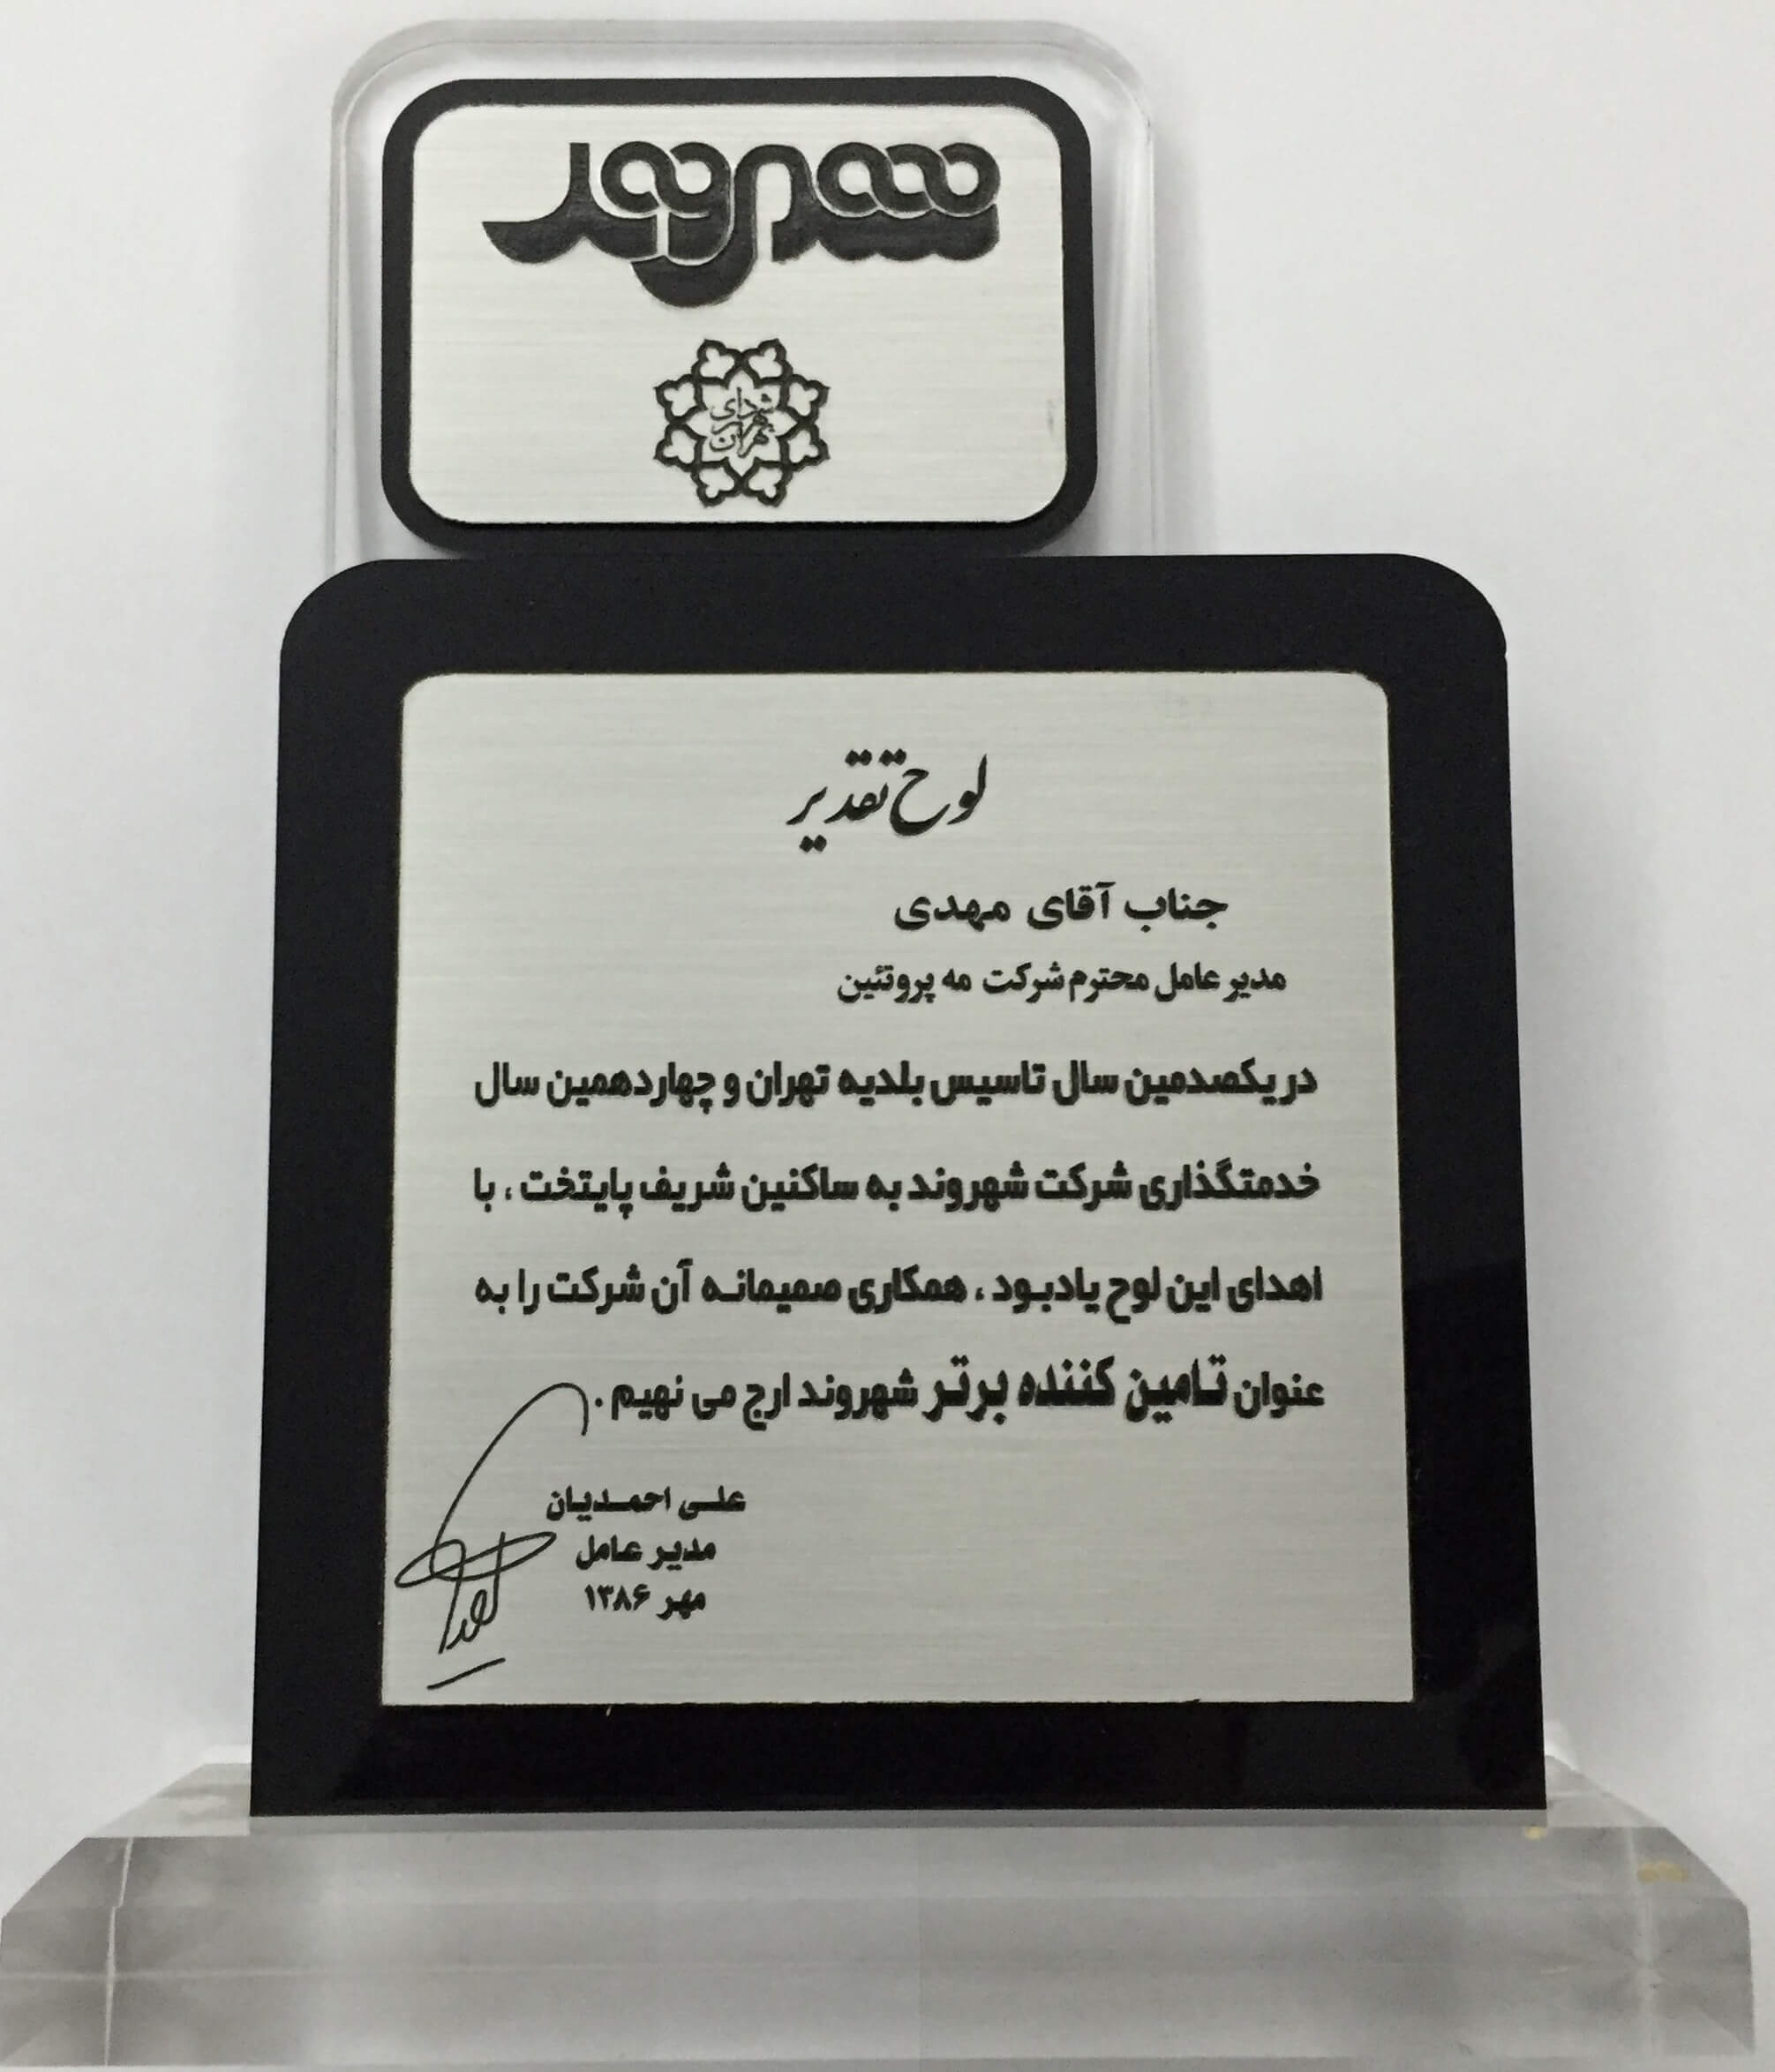 شهروند
شورای
تهران
لوح تقدیر
جناب آقای مهدی
مدیر عامل محترم شرکت مه پروتئین
در یکصدمین سال تاسیس بلدیه تهران و چهاردهمین سال
خدمتگذاری شرکت شهروند به ساکنین شریف پایتخت ، با
اهدای این لوح یادبود ، همکاری صمیمانه آن شرکت را به
عنوان تامین کننده برتر شهروند ارج می نهیم .
علی احمدیان
مدیر عامل
مهر ۱۳۸۶